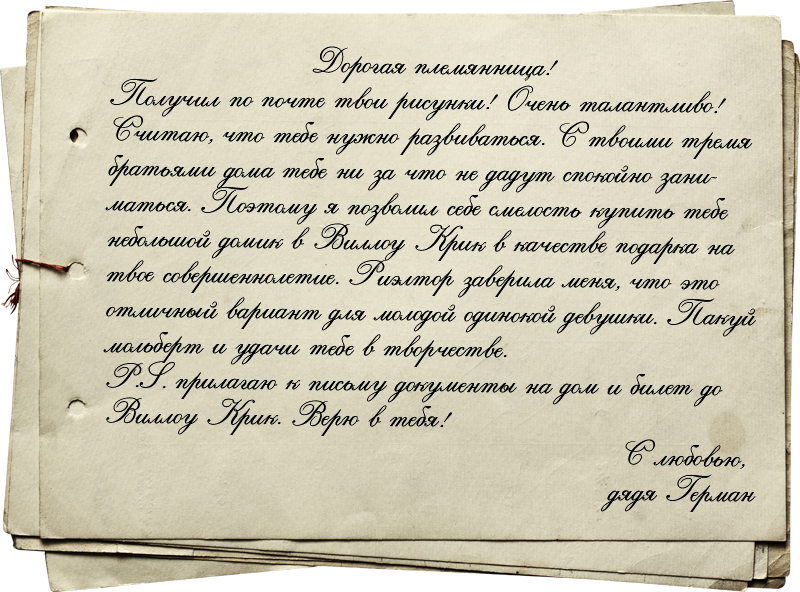 Дорогая племянница!
Получил по почте твои рисунки! Очень талантливо!
Считаю, что тебе нужно развиваться. С твоими тремя
братьями дома тебе ни за что не дадут спокойно зани-
маться. Поэтому я позволил себе смелость купить тебе
небольшой домик в Виллоу Крик в качестве подарка на
твое совершеннолетие. Риэлтор заверила меня, что это
отличный вариант для молодой одинокой девушки. Пакуй
мольберт и удачи тебе в творчестве.
P.S. прилагаю к письму документы на дом и билет до
Виллоу Крик. Верю в тебя!
С любовью,
дядя Герман